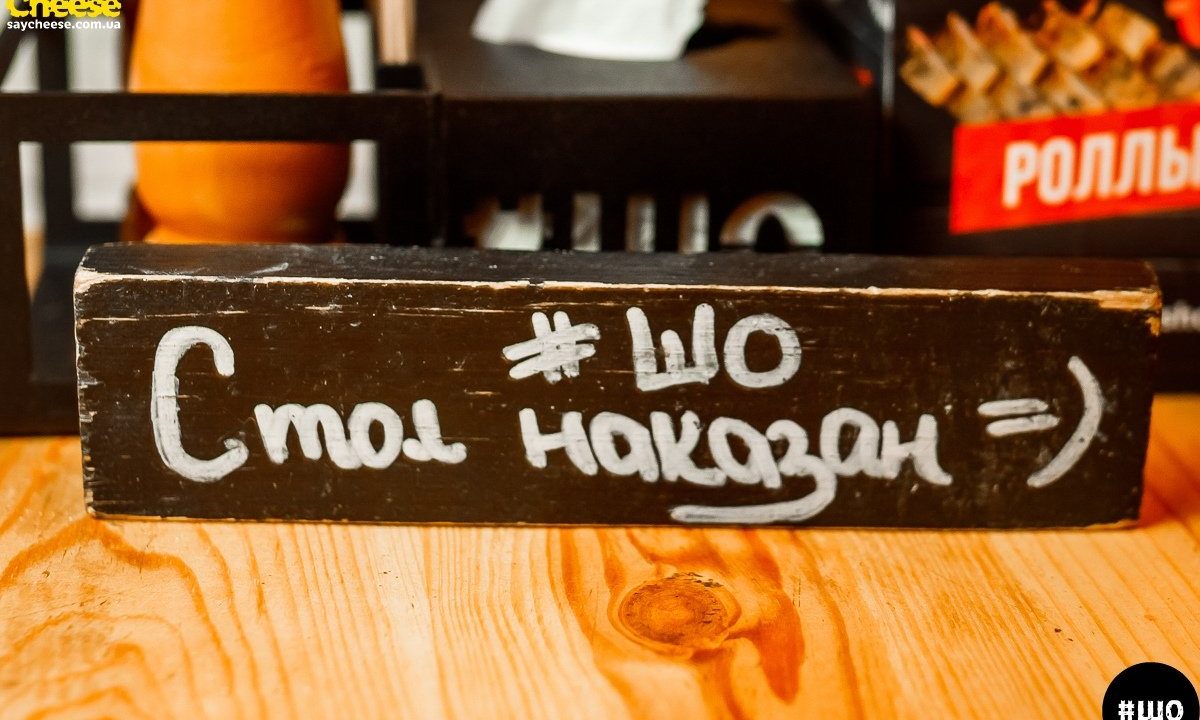 Cheese
saycheese.com.ua
#ШО
РОЛЛЫ
#ШО
Стол наказан =)
#ШО